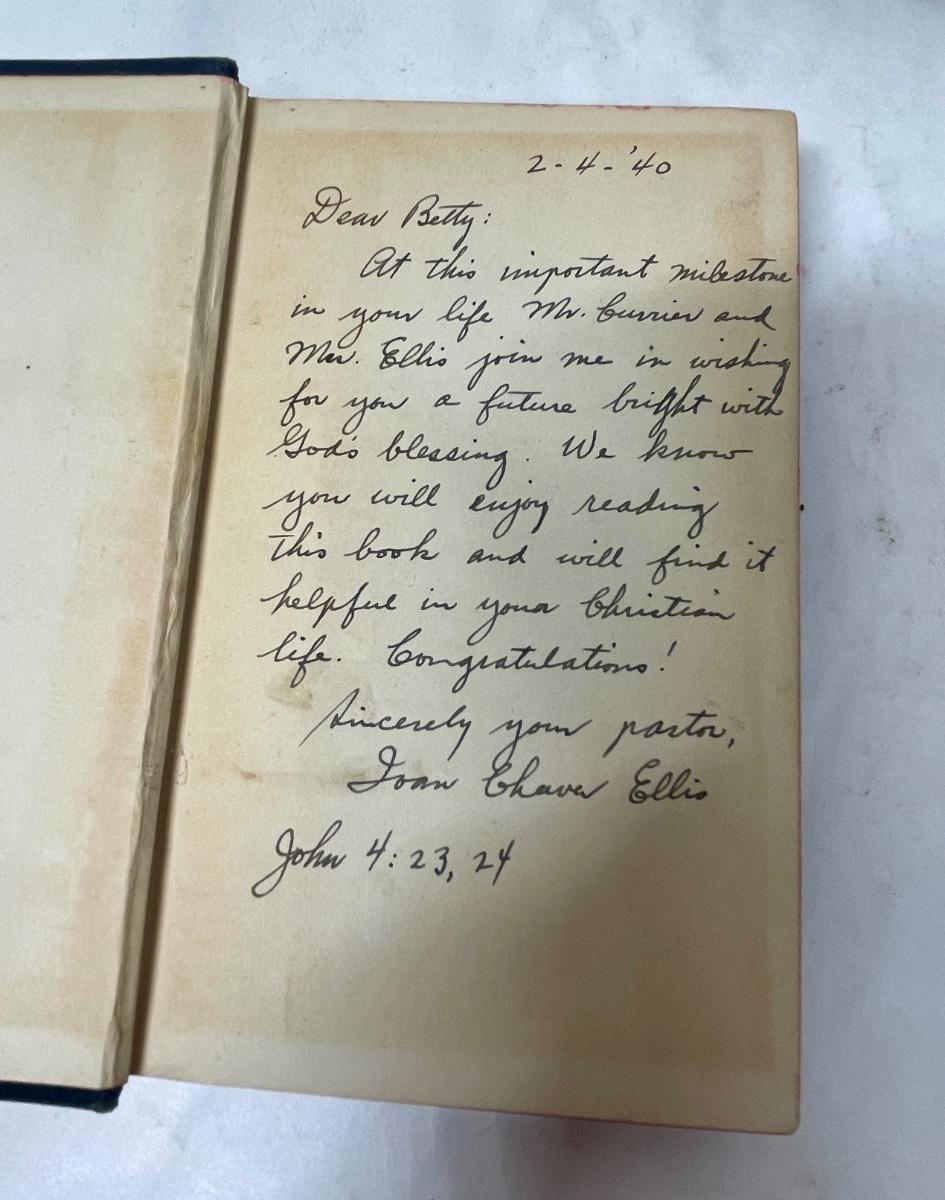 2-4-'40
Dear Betty:
At this important milestone
in your life Mr. Currier and
Mrs. Ellis join me in wishing
for you a future bright with
God's blessing. We know
you will enjoy reading
this book and will find it
helpful in your Christian
life. Congratulations!
Sincerely your pastor,
Ellis
John 4:23, 24